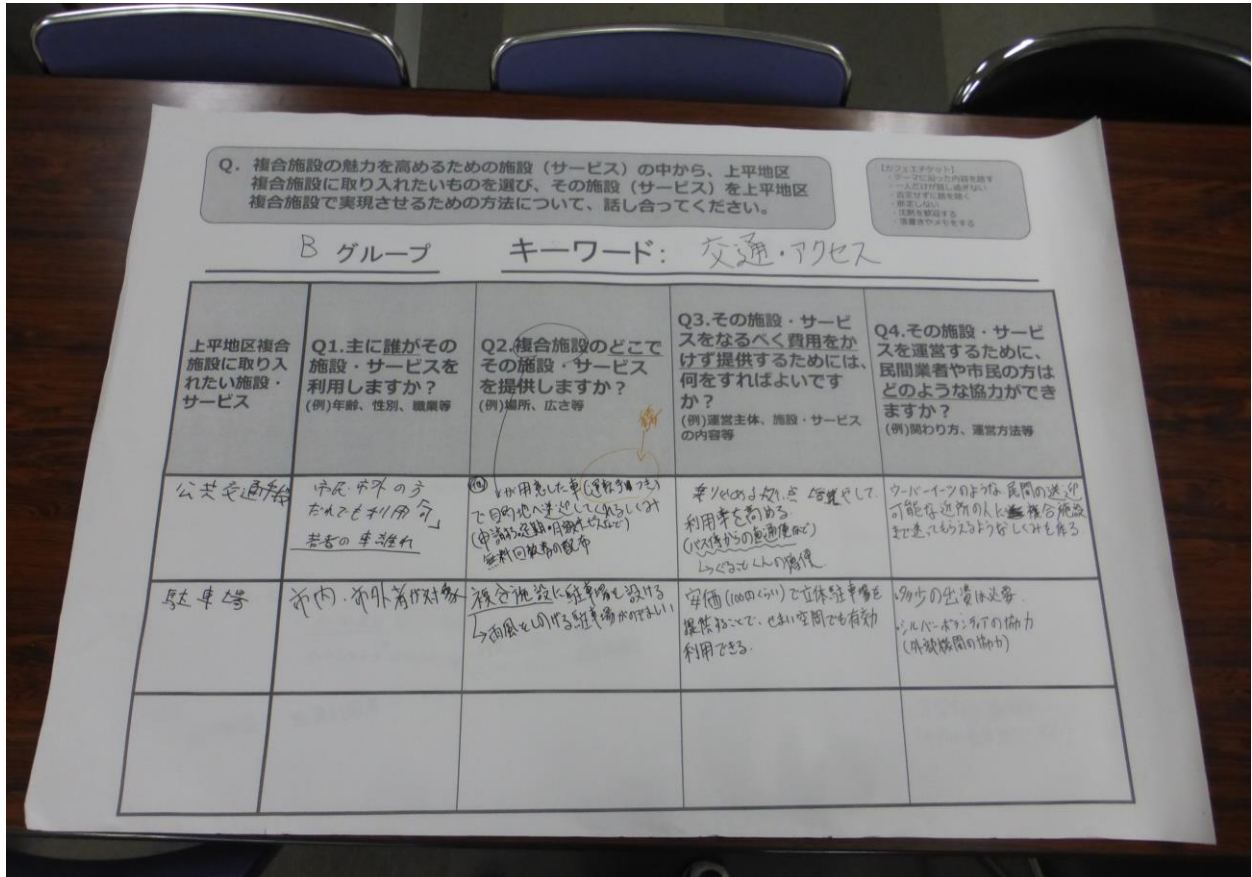 Q. 複合施設の魅力を高めるための施設（サービス）の中から、上平地区
複合施設に取り入れたいものを選び、その施設（サービス）を上平地区
複合施設で実現させるための方法について、話し合ってください。
【カフェエチケット】
・テーマに沿った内容を話す
・一人だけが話し過ぎない
・否定せずに話を聴く
・断定しない
・沈黙を歓迎する
・落書きやメモをする
B グループ
キーワード： 交通・アクセス
上平地区複合
施設に取り入
れたい施設・
サービス
Q1.主に誰がその
施設・サービスを
利用しますか？
(例)年齢、性別、職業等
Q2.複合施設のどこで
その施設・サービス
を提供しますか？
(例)場所、広さ等
Q3.その施設・サービ
スをなるべく費用をか
けず提供するためには、
何をすればよいです
か？
(例)運営主体、施設・サービス
の内容等
Q4.その施設・サービ
スを運営するために、
民間業者や市民の方は
どのような協力ができ
ますか？
(例)関わり方、運営方法等
公共交通手段
市民・市外の方
だれでも利用「可」
若者の車離れ
が用意した車(運転手つき)
で目的地へ送迎してくれるしくみ
無料回数券の配布
利用率を高める
(バス停からの直通便など)
↳ぐるっとくんの増便
ウーバーイーツのような民間の送迎
可能な近所の人に複合施設
まで送ってもらえるようなしくみを作る
駐車場
市内・市外者が対象
複合施設に駐車場も設ける
↳雨風をしのげる駐車場がのぞましい
安価(100円くらい)で立体駐車場を
提供することで、せまい空間でも有効
利用できる.
・多少の出資は必要.
・シルバーボランティアの協力
(外放機関の協力)